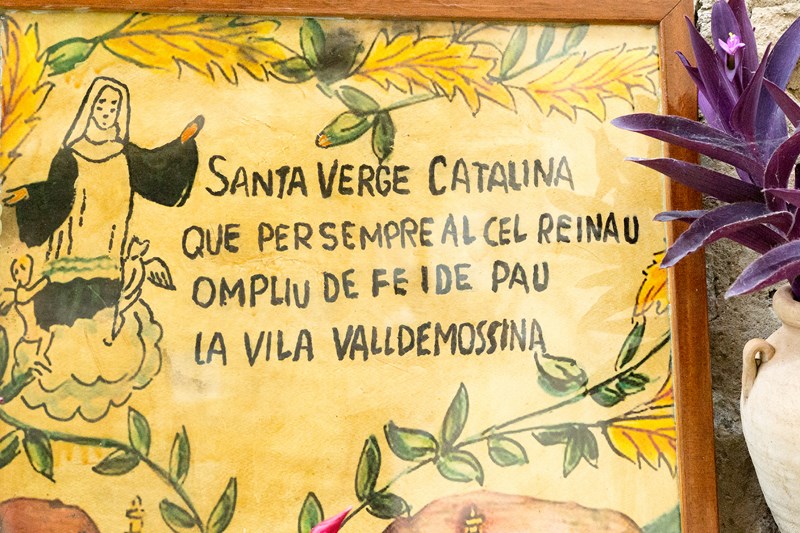 SANTA VERGE CATALINA
QUE PER SEMPRE AL CEL REINAU
OMPLIU DE FE I DE PAU
LA VILA VALLDEMOSSINA